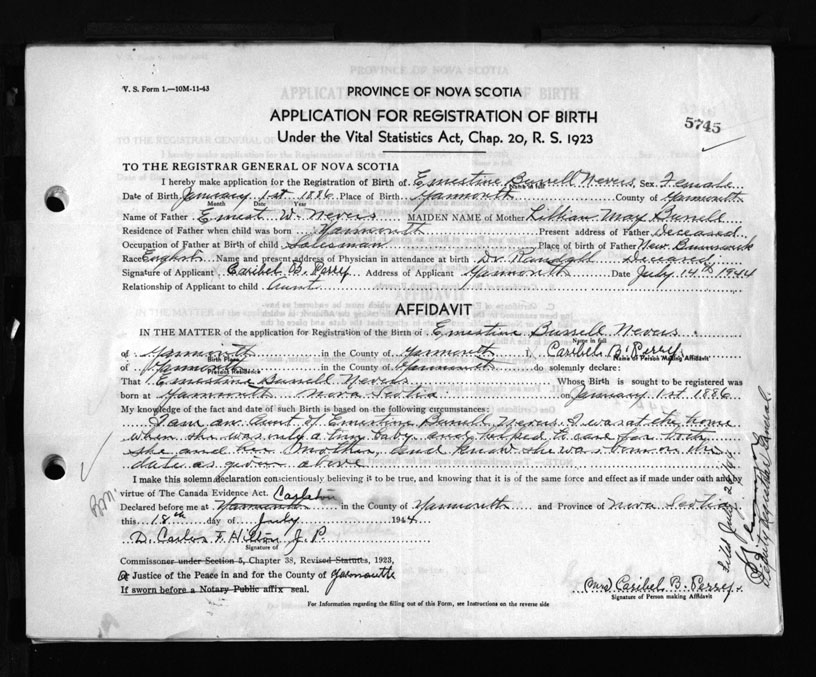 V. S. Form 1.—10M-11-43
PROVINCE OF NOVA SCOTIA
APPLICATION FOR REGISTRATION OF BIRTH
Under the Vital Statistics Act, Chap. 20, R. S. 1923
5745
TO THE REGISTRAR GENERAL OF NOVA SCOTIA
I hereby make application for the Registration of Birth of Ernestine Burrell Nevers Sex Female
Name in full
Date of Birth January 1st 1886 Place of Birth Yarmouth County of Yarmouth
Month Date Year
Name of Father Ernest W. Nevers MAIDEN NAME of Mother Lillian May Burrell
Residence of Father when child was born Yarmouth Present address of Father Deceased
Occupation of Father at Birth of child Salesman Place of Birth of Father New Brunswick
Race English Name and present address of Physician in attendance at birth Dr. Randall Deceased
Signature of Applicant Caribel B. Perry Address of Applicant Yarmouth Date July 14th 1944
Relationship of Applicant to child Aunt
AFFIDAVIT
IN THE MATTER of the application for Registration of the Birth of Ernestine Burrell Nevers
Name in full
of Yarmouth in the County of Yarmouth I, Caribel B. Perry
Birth Place Name of Person Making Affidavit
of Yarmouth in the County of Yarmouth do solemnly declare:
Present Residence
That Ernestine Burrell Nevers Whose Birth is sought to be registered was
born at Yarmouth Nova Scotia on January 1st 1886
My knowledge of the fact and date of such Birth is based on the following circumstances:
I am an Aunt of Ernestine Burrell Nevers. I was at the home
when she was only a tiny baby and helped to care for both
she and her Mother, and know she was born on the
date as given above
I make this solemn declaration conscientiously believing it to be true, and knowing that it is of the same force and effect as if made under oath and by
virtue of The Canada Evidence Act. Carleton
Declared before me at Yarmouth in the County of Yarmouth and Province of Nova Scotia
this 18th day of July 1944
D. Carlos F. Hilton J. P.
Signature of
Commissoner under Section 5, Chapter 38, Revised Statutes, 1923,
Or Justice of the Peace in and for the County of Yarmouth
If sworn before a Notary Public affix seal.
(Mrs) Caribel B. Perry
Signature of Person making Affidavit
For Information regarding the filling out of this Form, see Instructions on the reverse side
Deputy Registrar General